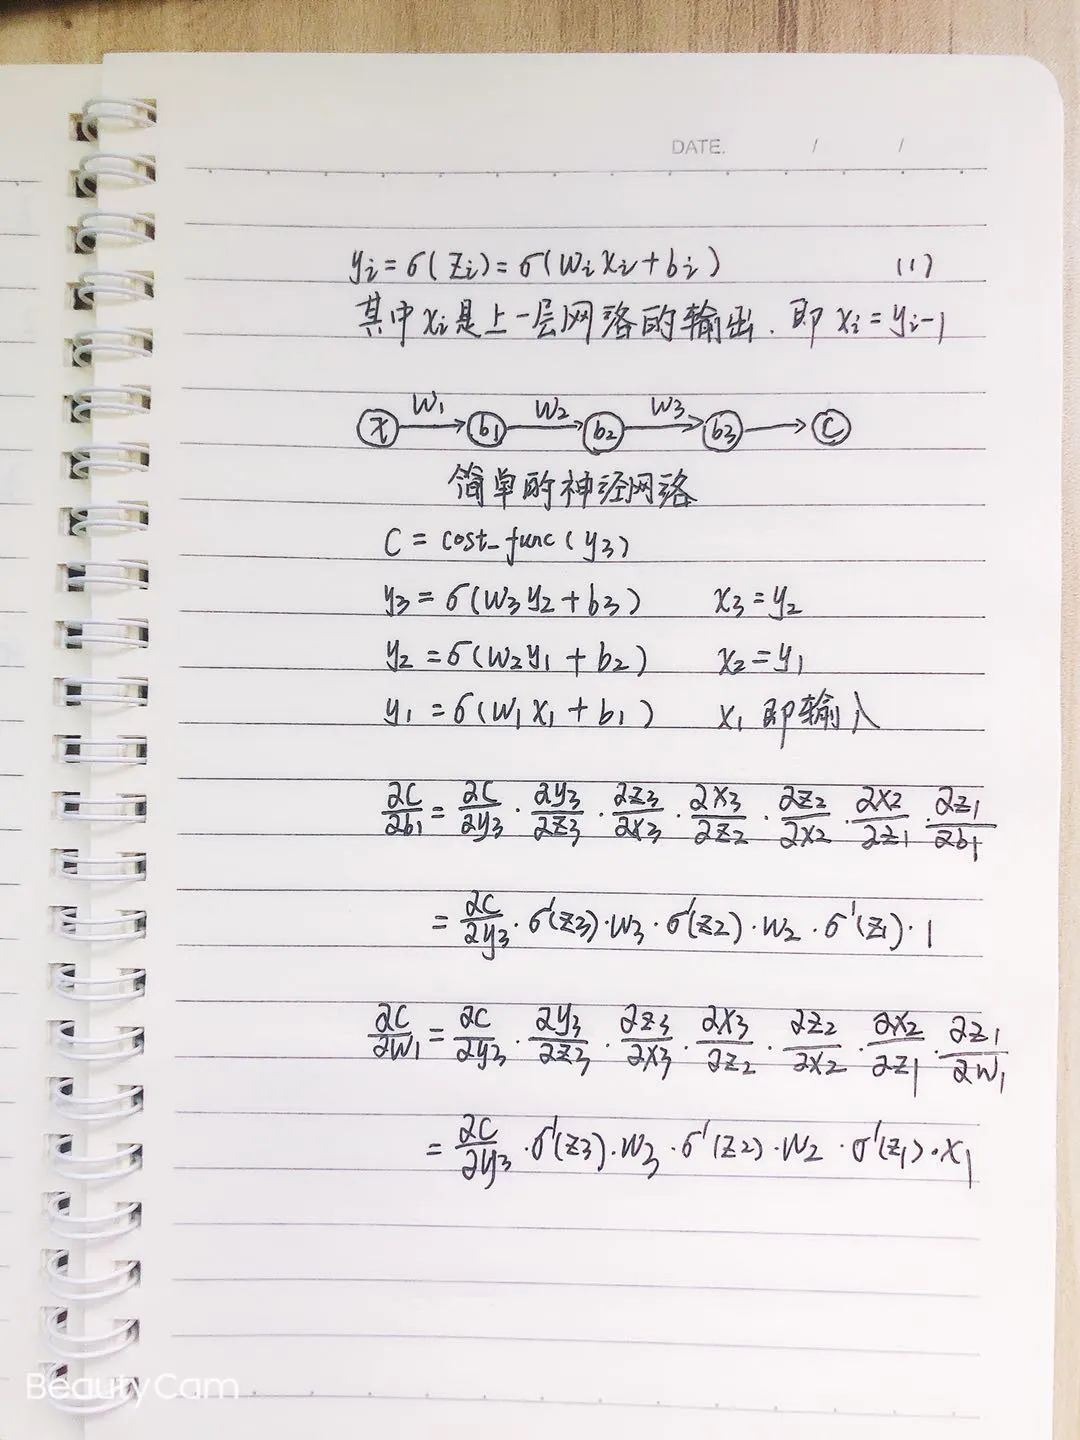 DATE. / /
yi = σ(zi) = σ(wixi + bi) (1)
其中xi是上一层网络的输出.即 xi = yi-1
w1 w2 w3
x b1 b2 b3 C
简单的神经网络
C = cost_func(y3)
y3 = σ(w3y2 + b3) x3 = y2
y2 = σ(w2y1 + b2) x2 = y1
y1 = σ(w1x1 + b1) x1即输入
∂C/∂b1 = ∂C/∂y3 · ∂y3/∂z3 · ∂z3/∂x3 · ∂x3/∂z2 · ∂z2/∂x2 · ∂x2/∂z1 · ∂z1/∂b1
= ∂C/∂y3 · σ'(z3) · w3 · σ'(z2) · w2 · σ'(z1) · 1
∂C/∂w1 = ∂C/∂y3 · ∂y3/∂z3 · ∂z3/∂x3 · ∂x3/∂z2 · ∂z2/∂x2 · ∂x2/∂z1 · ∂z1/∂w1
= ∂C/∂y3 · σ'(z3) · w3 · σ'(z2) · w2 · σ'(z1) · x1
BeautyCam